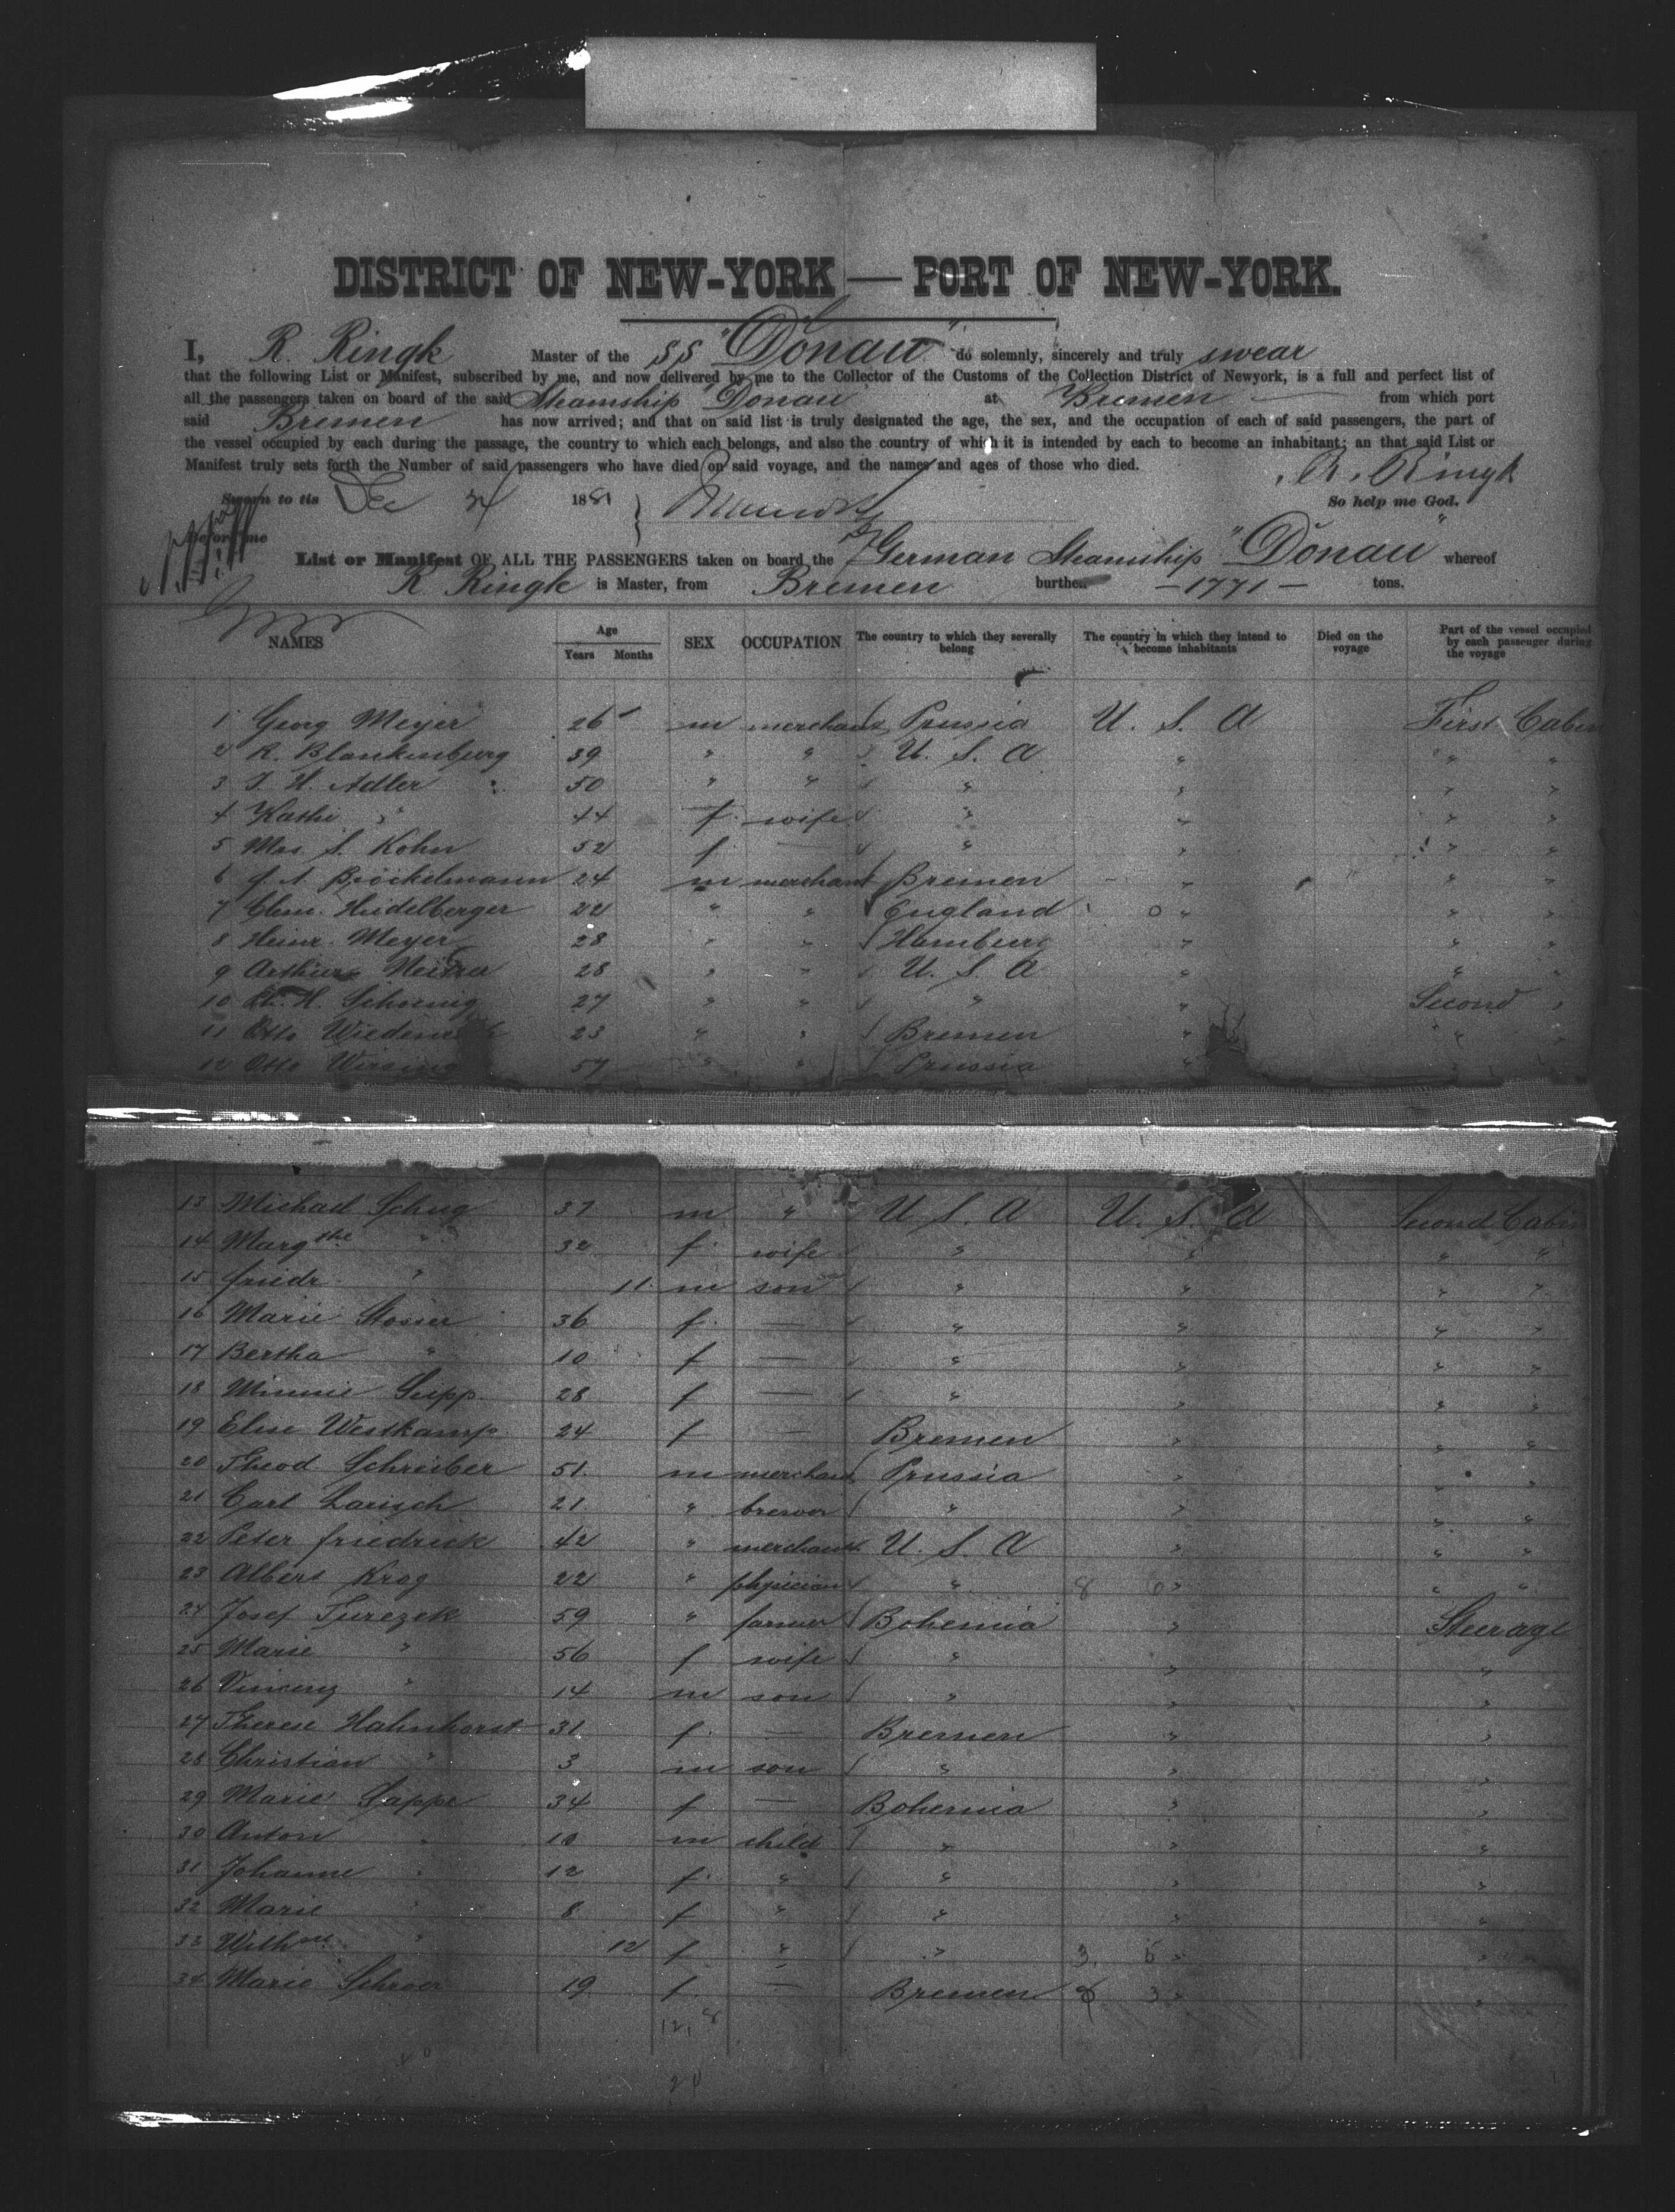 DISTRICT OF NEW-YORK — PORT OF NEW-YORK.
I, R. Ringk Master of the SS "Donau" do solemnly, sincerely and truly swear
that the following List or Manifest, subscribed by me, and now delivered by me to the Collector of the Customs of the Collection District of Newyork, is a full and perfect list of
all the passengers taken on board of the said Steamship "Donau" at Bremen from which port
said Bremen has now arrived; and that on said list is truly designated the age, the sex, and the occupation of each of said passengers, the part of
the vessel occupied by each during the passage, the country to which each belongs, and also the country of which it is intended by each to become an inhabitant; an that said List or
Manifest truly sets forth the Number of said passengers who have died on said voyage, and the names and ages of those who died. R. Ringk
Sworn to tis Dec 1881 So help me God.
before me
List or Manifest OF ALL THE PASSENGERS taken on board the German Steamship "Donau" whereof
R Ringk is Master, from Bremen burthen — 1771 — tons.
NAMES Age Years Months SEX OCCUPATION The country to which they severally belong The country in which they intend to become inhabitants Died on the voyage Part of the vessel occupied by each passenger during the voyage
1 Georg Meyer 26 m merchant Prussia U. S. A First Cabin
2 R. Blankenburg 39 " " U. S. A " " "
3 J. H. Adler 50 " " " " " "
4 Kathi " 44 f. wife " " " "
5 Mrs. S. Kohn 52 f. — " " " "
6 Bröckelmann 24 m merchant Bremen " " "
7 Clem. Heidelberger 22 " " England " " "
8 Heinr. Meyer 28 " " Hamburg " " "
9 Arthur 28 " " U. S. A " " "
10 H. Schoenig 27 " " " " Second "
11 Otto 23 " " Bremen " " "
12 Otto Wirsing 57 " " Prussia " " "
13 Michael Schug 37 m " U S. A U. S. A Second Cabin
14 Margthe " 32 f. wife " " " "
15 Friedr. " 11. m son " " " "
16 Marie Stosser 36 f. — " " " "
17 Bertha " 10 f — " " " "
18 Minnie Seipp. 28 f — " " " "
19 Elise Westkamp 24 f — Bremen " " "
20 Theod Schreiber 51. m merchant Prussia " " "
21 Carl Larisch 21. " brewer " " " "
22 Peter Friedrick 42 " merchant U. S. A " " "
23 Albert Krog 22 " physician " 8 0 " " "
24 Josef Turezek 59 " farmer Bohemia " Steerage
25 Marie " 56 f wife " " "
26 Vincenz " 14 m son " " "
27 Therese Hahnhorst 31 f. — Bremen " "
28 Christian " 3 m son " " "
29 Marie Sappe 34 f — Bohemia " "
30 Anton " 10 m child " " "
31 Johanne " 12 f. " " " "
32 Marie " 8 f " " " "
33 " 12 f " " 3. 5 " "
34 Marie Schroer 19 f. — Bremen 3 " "